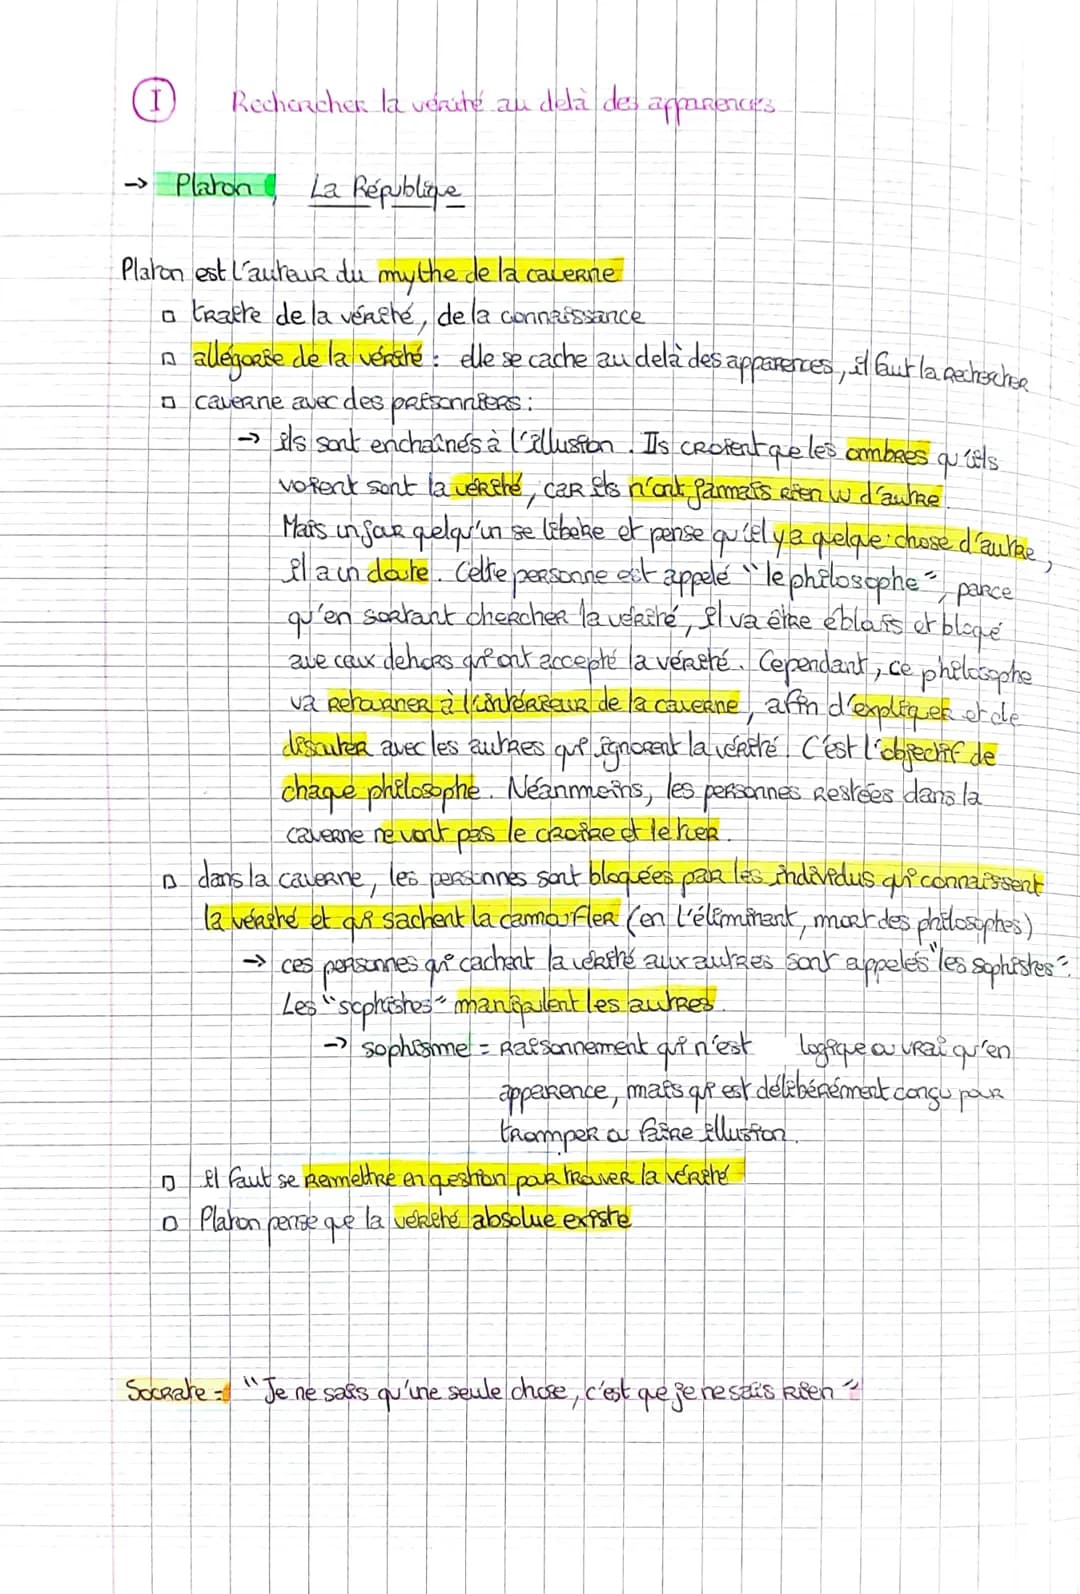 I Rechercher la vérité au delà des apparences
→ Platon, La République
Platon est l'auteur du mythe de la caverne
□ traite de la vérité, de la connaissance
□ allégorie de la vérité : elle se cache au delà des apparences, il faut la rechercher
□ caverne avec des prisonniers :
→ ils sont enchaînés à l'illusion. Ils croient que les ombres qu'ils
voient sont la vérité, car ils n'ont jamais rien vu d'autre.
Mais un jour quelqu'un se libère et pense qu'il y a quelque chose d'autre,
il a un doute. Cette personne est appelé "le philosophe", parce
qu'en sortant chercher la vérité, il va être éblouis et bloqué
ave ceux dehors qui ont accepté la vérité. Cependant, ce philosophe
va retourner à l'intérieur de la caverne, afin d'expliquer et de
discuter avec les autres qui ignorent la vérité. C'est l'objectif de
chaque philosophe. Néanmoins, les personnes restées dans la
caverne ne vont pas le croire et le tuer.
□ dans la caverne, les personnes sont bloquées par les individus qui connaissent
la vérité et qui sachent la camoufler (en l'éliminant, mort des philosophes)
→ ces personnes qui cachent la vérité aux autres sont appelés "les sophistes".
Les "sophistes" manipulent les autres.
→ sophisme = raisonnement qui n'est logique ou vrai qu'en
apparence, mais qui est délibérément conçu pour
tromper ou faire illusion.
□ il faut se remettre en question pour trouver la vérité
□ Platon pense que la vérité absolue existe
Socrate = "Je ne sais qu'une seule chose, c'est que je ne sais rien"